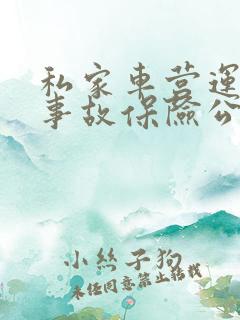 私家車营運
事故保險公
小丝子狗
未经同意禁止转载